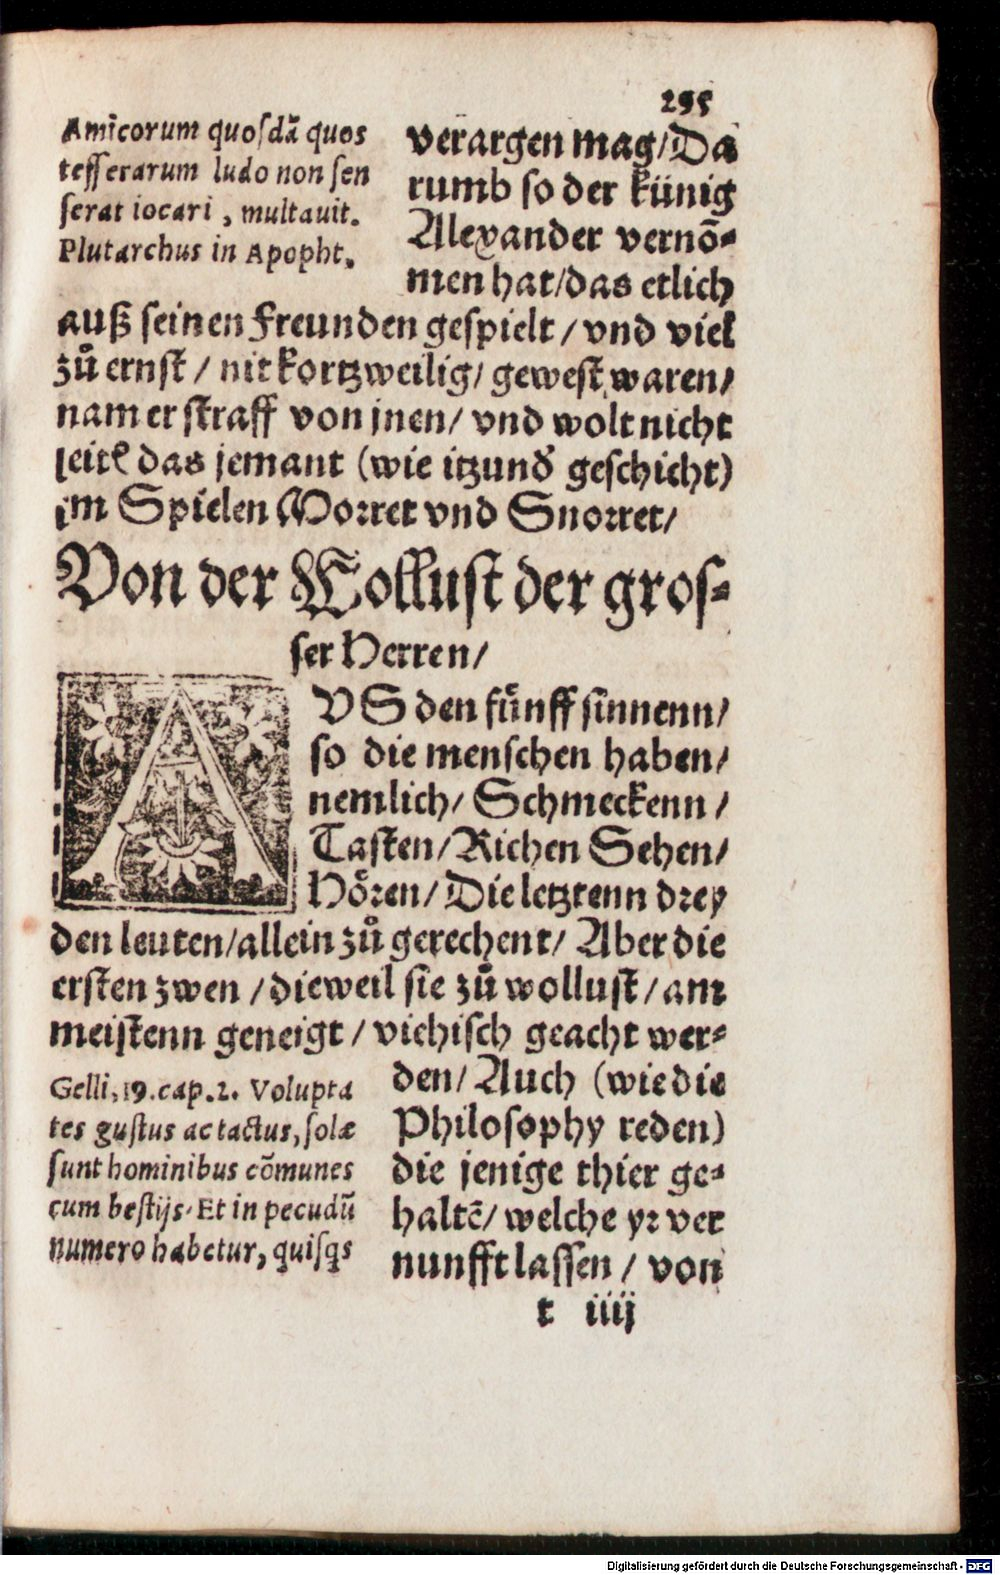 295
Amicorum quosdã quos
tesserarum ludo non sen
serat iocari, multauit.
Plutarchus in Apopht.
verargen mag/Da
rumb so der künig
Alexander vernõ-
men hat/das etlich
auß seinen Freunden gespielt / vnd viel
zů ernst / nit kortzweilig/ gewest waren/
nam er straff von jnen/ vnd wolt nicht
das jemant (wie itzund geschicht)
im Spielen Morret vnd Snorret/
Von der Wollust der gros-
ser Herren/
AVS den fünff sinnenn/
so die menschen haben/
nemlich/ Schmeckenn /
Tasten/Richen Sehen/
Hören/ Die letztenn drey
den leuten/allein zů gerechent/ Aber die
ersten zwen /dieweil sie zů wollust/am
meistenn geneigt / viehisch geacht wer-
den/ Auch (wie die
Philosophy reden)
die jenige thier ge-
haltẽ/ welche yr ver
nunfft lassen / von
Gelli, 19. cap. 2. Volupta
tes gustus ac tactus, solæ
sunt hominibus cõmunes
cum bestijs. Et in pecudũ
numero habetur, quisqs
t iiij
Digitalisierung gefördert durch die Deutsche Forschungsgemeinschaft - DFG